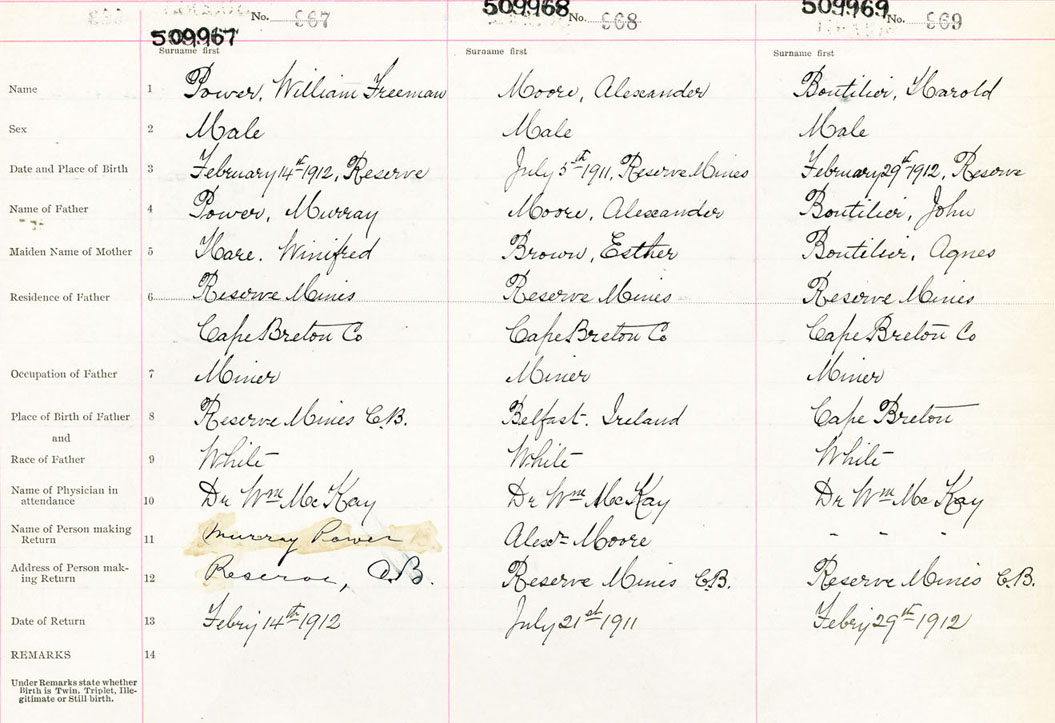 No. 967 509968 No. 968 509969 No. 969
509967
Surname first Surname first Surname first
Name 1 Power, William Freeman Moore, Alexander Boutilier, Harold
Sex 2 Male Male Male
Date and Place of Birth 3 February 14th 1912, Reserve July 5th 1911, Reserve Mines February 29th 1912, Reserve
Name of Father 4 Power, Murray Moore, Alexander Boutilier, John
Maiden Name of Mother 5 Hare. Winifred Brown, Esther Boutilier, Agnes
Residence of Father 6 Reserve Mines Reserve Mines Reserve Mines
Cape Breton Co Cape Breton Co Cape Breton Co
Occupation of Father 7 Miner Miner Miner
Place of Birth of Father 8 Reserve Mines C.B. Belfast. Ireland Cape Breton
and
Race of Father 9 White White White
Name of Physician in
attendance 10 Dr Wm McKay Dr Wm McKay Dr Wm McKay
Name of Person making
Return 11 Murray Power Alexr Moore " " "
Address of Person mak-
ing Return 12 Reserve, C.B. Reserve Mines C.B. Reserve Mines C.B.
Date of Return 13 Febry 14th 1912 July 21st 1911 Febry 29th 1912
REMARKS 14
Under Remarks state whether
Birth is Twin, Triplet, Ille-
gitimate or Still birth.